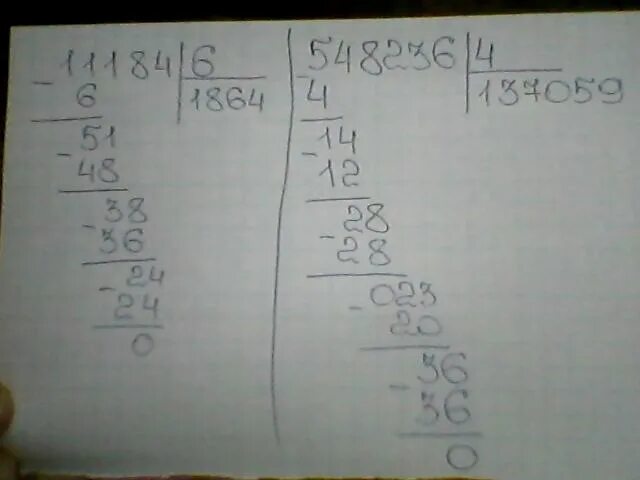 -11184|6
6 |1864
51
-48
38
-36
24
-24
0
548236|4
-4 |137059
14
-12
28
-28
023
-20
36
-36
0